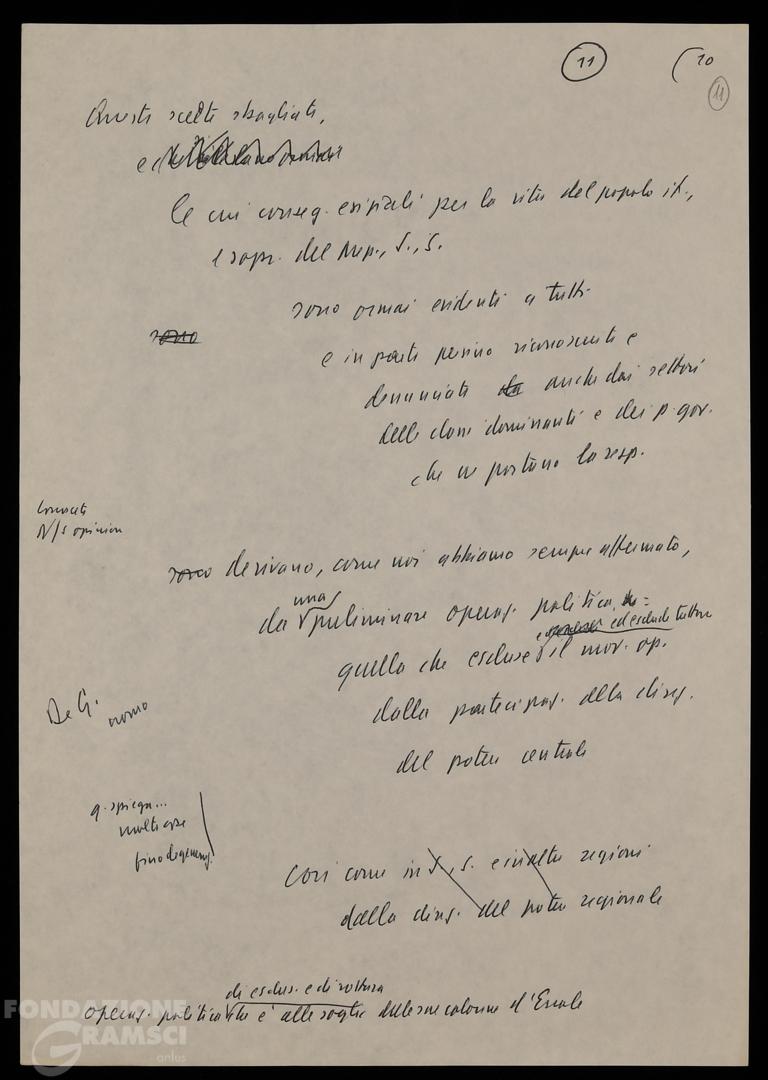 11
10
11
Queste scelte sbagliate,
le cui conseg. esiziali per la vita del popolo it.,
e sopr. del Mep., S., S.
sono
sono ormai evidenti a tutti
e in parte persino riconosciute e
denunciate da anche dai settori
delle classi dominanti e dei p. gov.
che ne portano la resp.
N/s opinion
sono derivano, come noi abbiamo sempre affermato,
da una preliminare operaz. politica
ed esclude tuttora
quella che escluse il mov. op.
dalla partecipaz. alla direz.
del potere centrale
De G.
uomo
q. spiega...
molte cose
fino degeneraz.
Così come in S., S. e in altre regioni
dalla direz. del potere regionale
di esclus. e di rottura
operaz. politica che è alle soglie delle sue colonne d'Ercole
FONDAZIONE
GRAMSCI
onlus